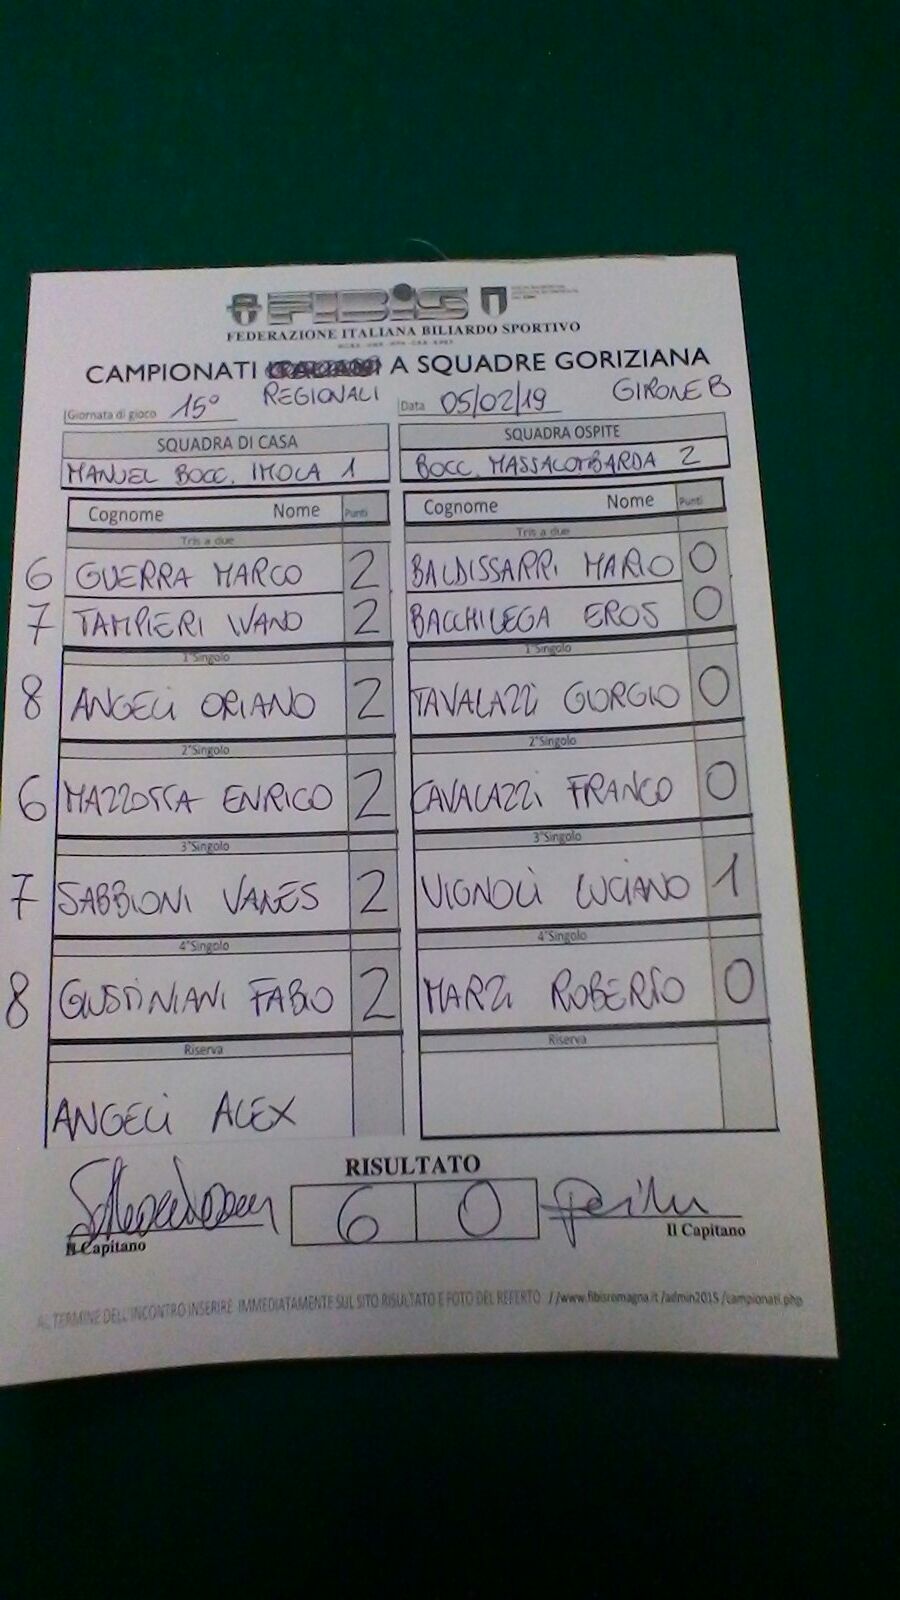 FIBIS
FEDERAZIONE ITALIANA BILIARDO SPORTIVO
CAMPIONATI ITALIANI A SQUADRE GORIZIANA
Giornata di gioco 15° REGIONALI Data 05/02/19 GIRONE B
SQUADRA DI CASA SQUADRA OSPITE
MANUEL BOCC. IMOLA 1 BOCC. MASSALOMBARDA 2
Cognome Nome Punti Cognome Nome Punti
Tris a due Tris a due
6 GUERRA MARCO 2 BALDISSARRI MARIO 0
7 TAMPIERI IVANO 2 BACCHILEGA EROS 0
1°Singolo 1°Singolo
8 ANGELI ORIANO 2 TAVALAZZI GIORGIO 0
2°Singolo 2°Singolo
6 MAZZOTTA ENRICO 2 CAVALAZZI FRANCO 0
3°Singolo 3°Singolo
7 SABBIONI VANES 2 VIGNOLI LUCIANO 1
4°Singolo 4°Singolo
8 GIUSTINIANI FABIO 2 MARZI ROBERTO 0
Riserva Riserva
ANGELI ALEX
RISULTATO
6 0
Il Capitano Il Capitano
AL TERMINE DELL'INCONTRO INSERIRE IMMEDIATAMENTE SUL SITO RISULTATO E FOTO DEL REFERTO //www.fibisromagna.it/admin2015/campionati.php